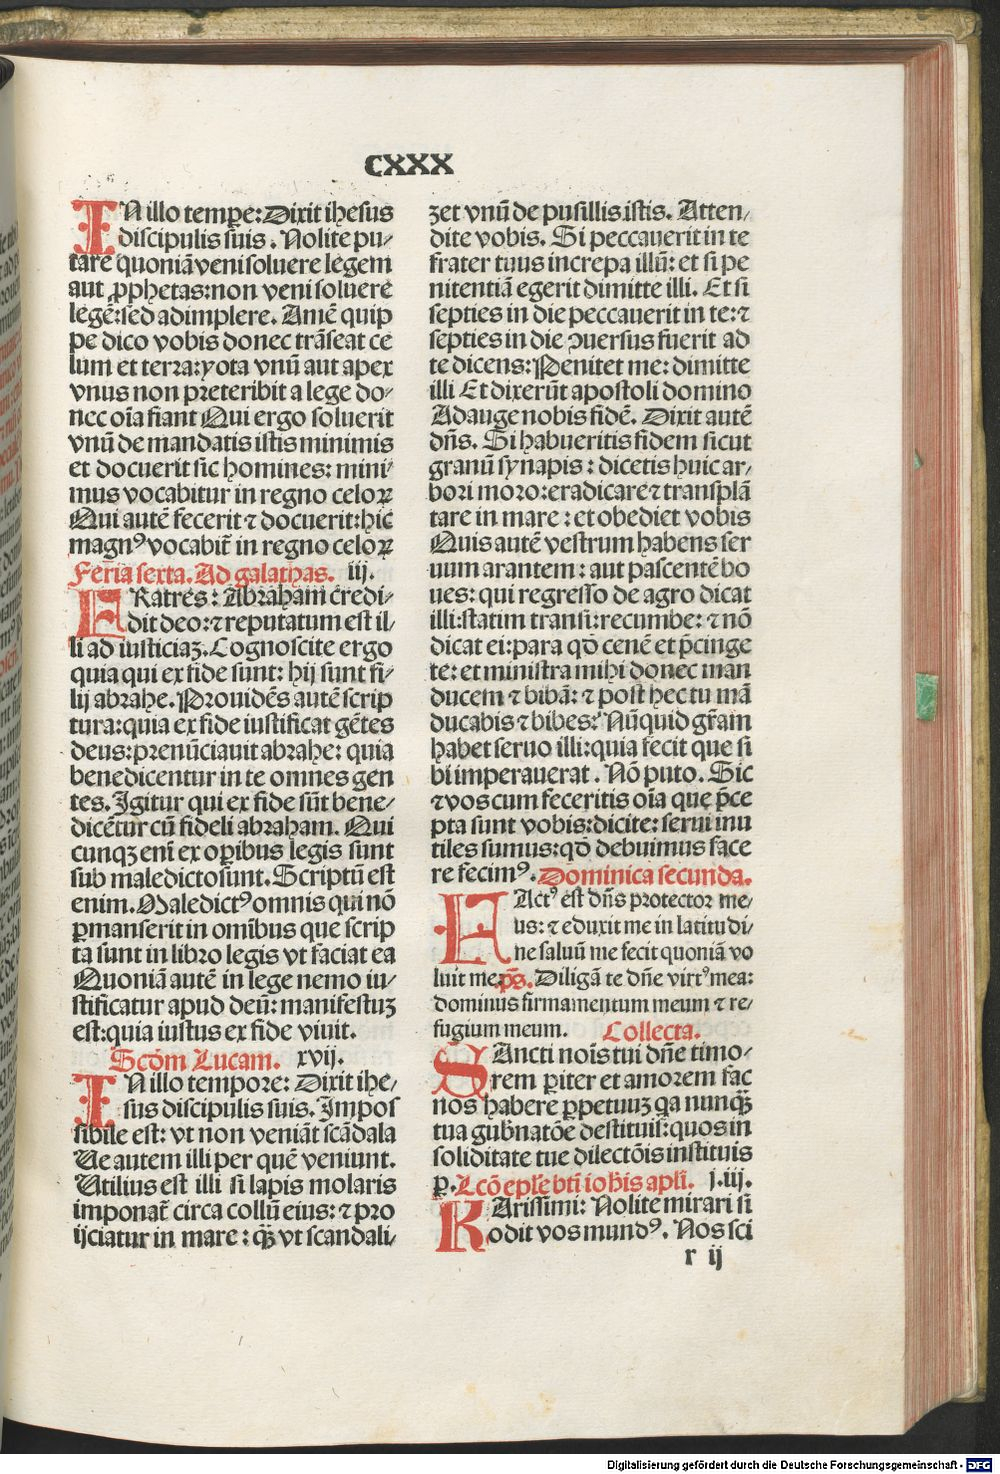 CXXX
IN illo temꝑe: Dixit ihesus
discipulis suis. Nolite pu/
tare quoniā veni soluere legem
aut ꝓphetas: non veni soluere
legē: sed adimplere. Amē quip
pe dico vobis donec trāseat ce
lum et terra: yota vnū aut apex
vnus non preteribit a lege do/
nec oīa fiant Qui ergo soluerit
vnū de mandatis istis minimis
et docuerit sic homines: mini/
mus vocabitur in regno celoꝝ
Qui autē fecerit ⁊ docuerit: hic
magnꝰ vocabit̄ in regno celoꝝ
Feria sexta. Ad galathas. iij.
FRatres: Abraham credi/
dit deo: ⁊ reputatum est il/
li ad iusticiaꝫ. Cognoscite ergo
quia qui ex fide sunt: hij sunt fi/
lij abrahe. Prouidēs autē scrip
tura: quia ex fide iustificat gētes
deus: prenūciauit abrahe: quia
benedicentur in te omnes gen
tes. Igitur qui ex fide sūt bene/
dicētur cū fideli abraham. Qui
cunqꝫ enī ex oꝑibus legis sunt
sub maledicto sunt. Scriptū est
enim. Maledictꝰ omnis qui nō
ꝑmanserit in omībus que scrip
ta sunt in libro legis vt faciat ea
Quoniā autē in lege nemo iu/
stificatur apud deū: manifestuꝫ
est: quia iustus ex fide viuit.
Scdm̄ Lucam. xvij.
IN illo tempore: Dixit ihe/
sus discipulis suis. Impos
sibile est: vt non veniāt scādala
Ve autem illi per quē veniunt.
Vtilius est illi si lapis molaris
imponat̄ circa collū eius: ⁊ pro
ijciatur in mare: qꝫ̄ vt scandali/
zet vnū de pusillis istis. Atten/
dite vobis. Si peccauerit in te
frater tuus increpa illū: et si pe
nitentiā egerit dimitte illi. Et si
septies in die peccauerit in te: ⁊
septies in die ꝯuersus fuerit ad
te dicens: Penitet me: dimitte
illi Et dixerūt apostoli domino
Adauge nobis fidē. Dixit autē
dn̄s. Si habueritis fidem sicut
granū synapis: dicetis huic ar/
bori moro: eradicare ⁊ transplā
tare in mare: et obediet vobis
Quis autē vestrum habens ser
uum arantem: aut pascentē bo
ues: qui regresso de agro dicat
illi: statim transi: recumbe: ⁊ nō
dicat ei: para qd̄ cenē et p̄cinge
te: et ministra mihi donec man
ducem ⁊ bibā: ⁊ post hec tu mā
ducabis ⁊ bibes? Nūquid gr̄am
habet seruo illi: quia fecit que si
bi imperauerat. Nō puto. Sic
⁊ vos cum feceritis oīa que p̄ce
pta sunt vobis: dicite: serui inu
tiles sumus: qd̄ debuimus face
re fecimꝰ. Dominica secunda.
FActꝰ est dn̄s protector me/
us: ⁊ eduxit me in latitudi/
ne saluū me fecit quoniā vo
luit me. ps̄. Diligā te dn̄e virtꝰ mea:
dominus firmamentum meum ⁊ re/
fugium meum. Collecta.
SAncti noīs tui dn̄e timo/
rem ꝑiter et amorem fac
nos habere ꝑpetuuꝫ qa nunqꝫ̄
tua gub̄natōe destituis: quos in
soliditate tue dilectōis instituis
ꝑ. Lcō ep̄le bti iohīs apl̄i. j. iij.
KArissimi: Nolite mirari si
odit vos mundꝰ. Nos sci
r ij
Digitalisierung gefördert durch die Deutsche Forschungsgemeinschaft - DFG